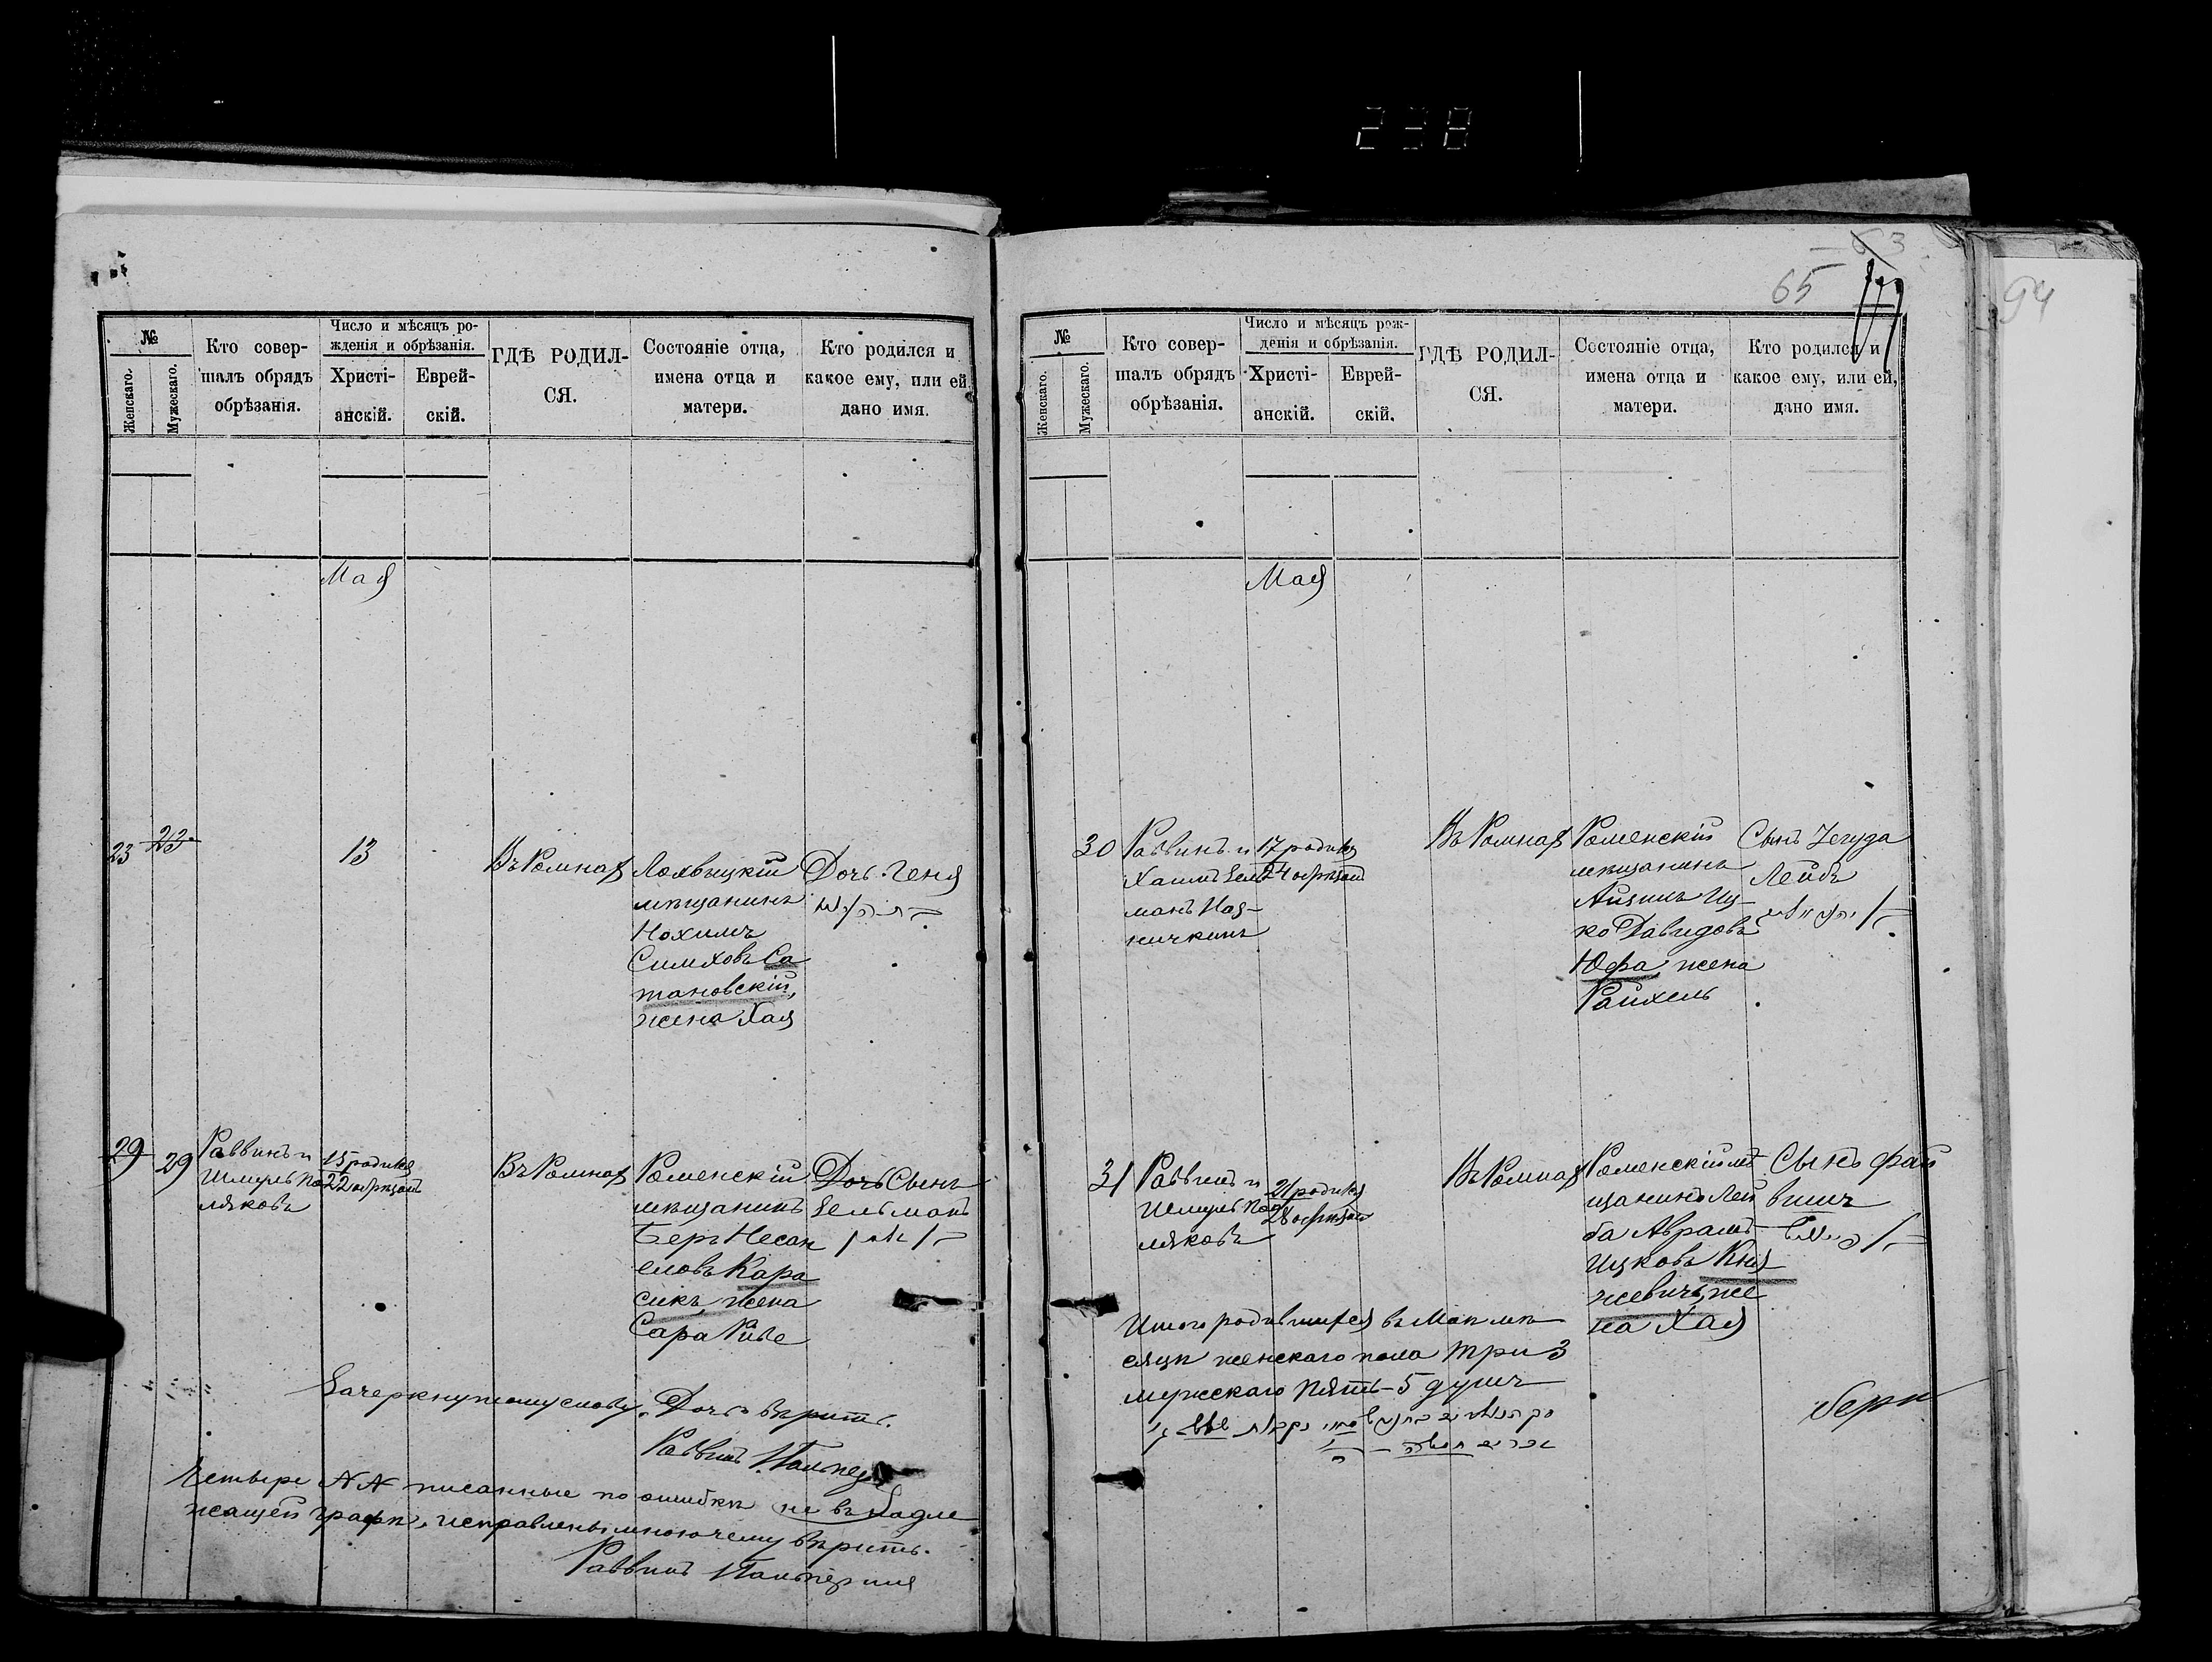 238
63
65
94
№
Женскаго.
Мужескаго.
Кто совер-
шалъ обрядъ
обрѣзанія.
Число и мѣсяцъ ро-
жденія и обрѣзанія.
Христі-
анскій.
Еврей-
скій.
ГДѢ РОДИЛ-
СЯ.
Состояніе отца,
имена отца и
матери.
Кто родился и
какое ему, или ей
дано имя.
Мая
23
23
13
Въ Ромнахъ
Лохвицкій
мѣщанинъ
Нохимъ
Симховъ Са
тановскій,
жена Хая
Дочь Геня
29
29
Раввинъ и
Шмуль По
ляковъ
15 родился
22 обрѣзанъ
Въ Ромнахъ
Роменскій
мѣщанинъ
Беръ Несан
еловъ Кара
сикъ, жена
Сара Риве
Дочь Сынъ
Зельманъ
Зачеркнутому слову „Дочь" вѣрить.
Раввинъ
Четыре NN писанные по ошибкѣ не въ надле
жащей графѣ, исправлены мною чему вѣрить.
Раввинъ
№
Женскаго.
Мужескаго.
Кто совер-
шалъ обрядъ
обрѣзанія.
Число и мѣсяцъ рож-
денія и обрѣзанія.
Христі-
анскій.
Еврей-
скій.
ГДѢ РОДИЛ-
СЯ.
Состояніе отца,
имена отца и
матери.
Кто родился и
какое ему, или ей,
дано имя.
Мая
30
Раввинъ и
Хаимъ Зель
манъ
17 родился
24 обрѣзанъ
Въ Ромнахъ
Роменскій
мѣщанинъ
Айзикъ Иц-
ко Давидовъ
Юфа, жена
Райхель
Сынъ Іегуда
Лейбъ
31
Раввинъ и
Шмуль По
ляковъ
21 родился
28 обрѣзанъ
Въ Ромнахъ
Роменскій мѣ
щанинъ Лей
ба Абрамъ
Ицковъ Кня
жевичъ, же
на Хая
Сынъ Фай
вишъ
Итого родившихся въ Маѣ мѣ
сяцѣ женскаго пола три 3
мужескаго пять – 5 душъ